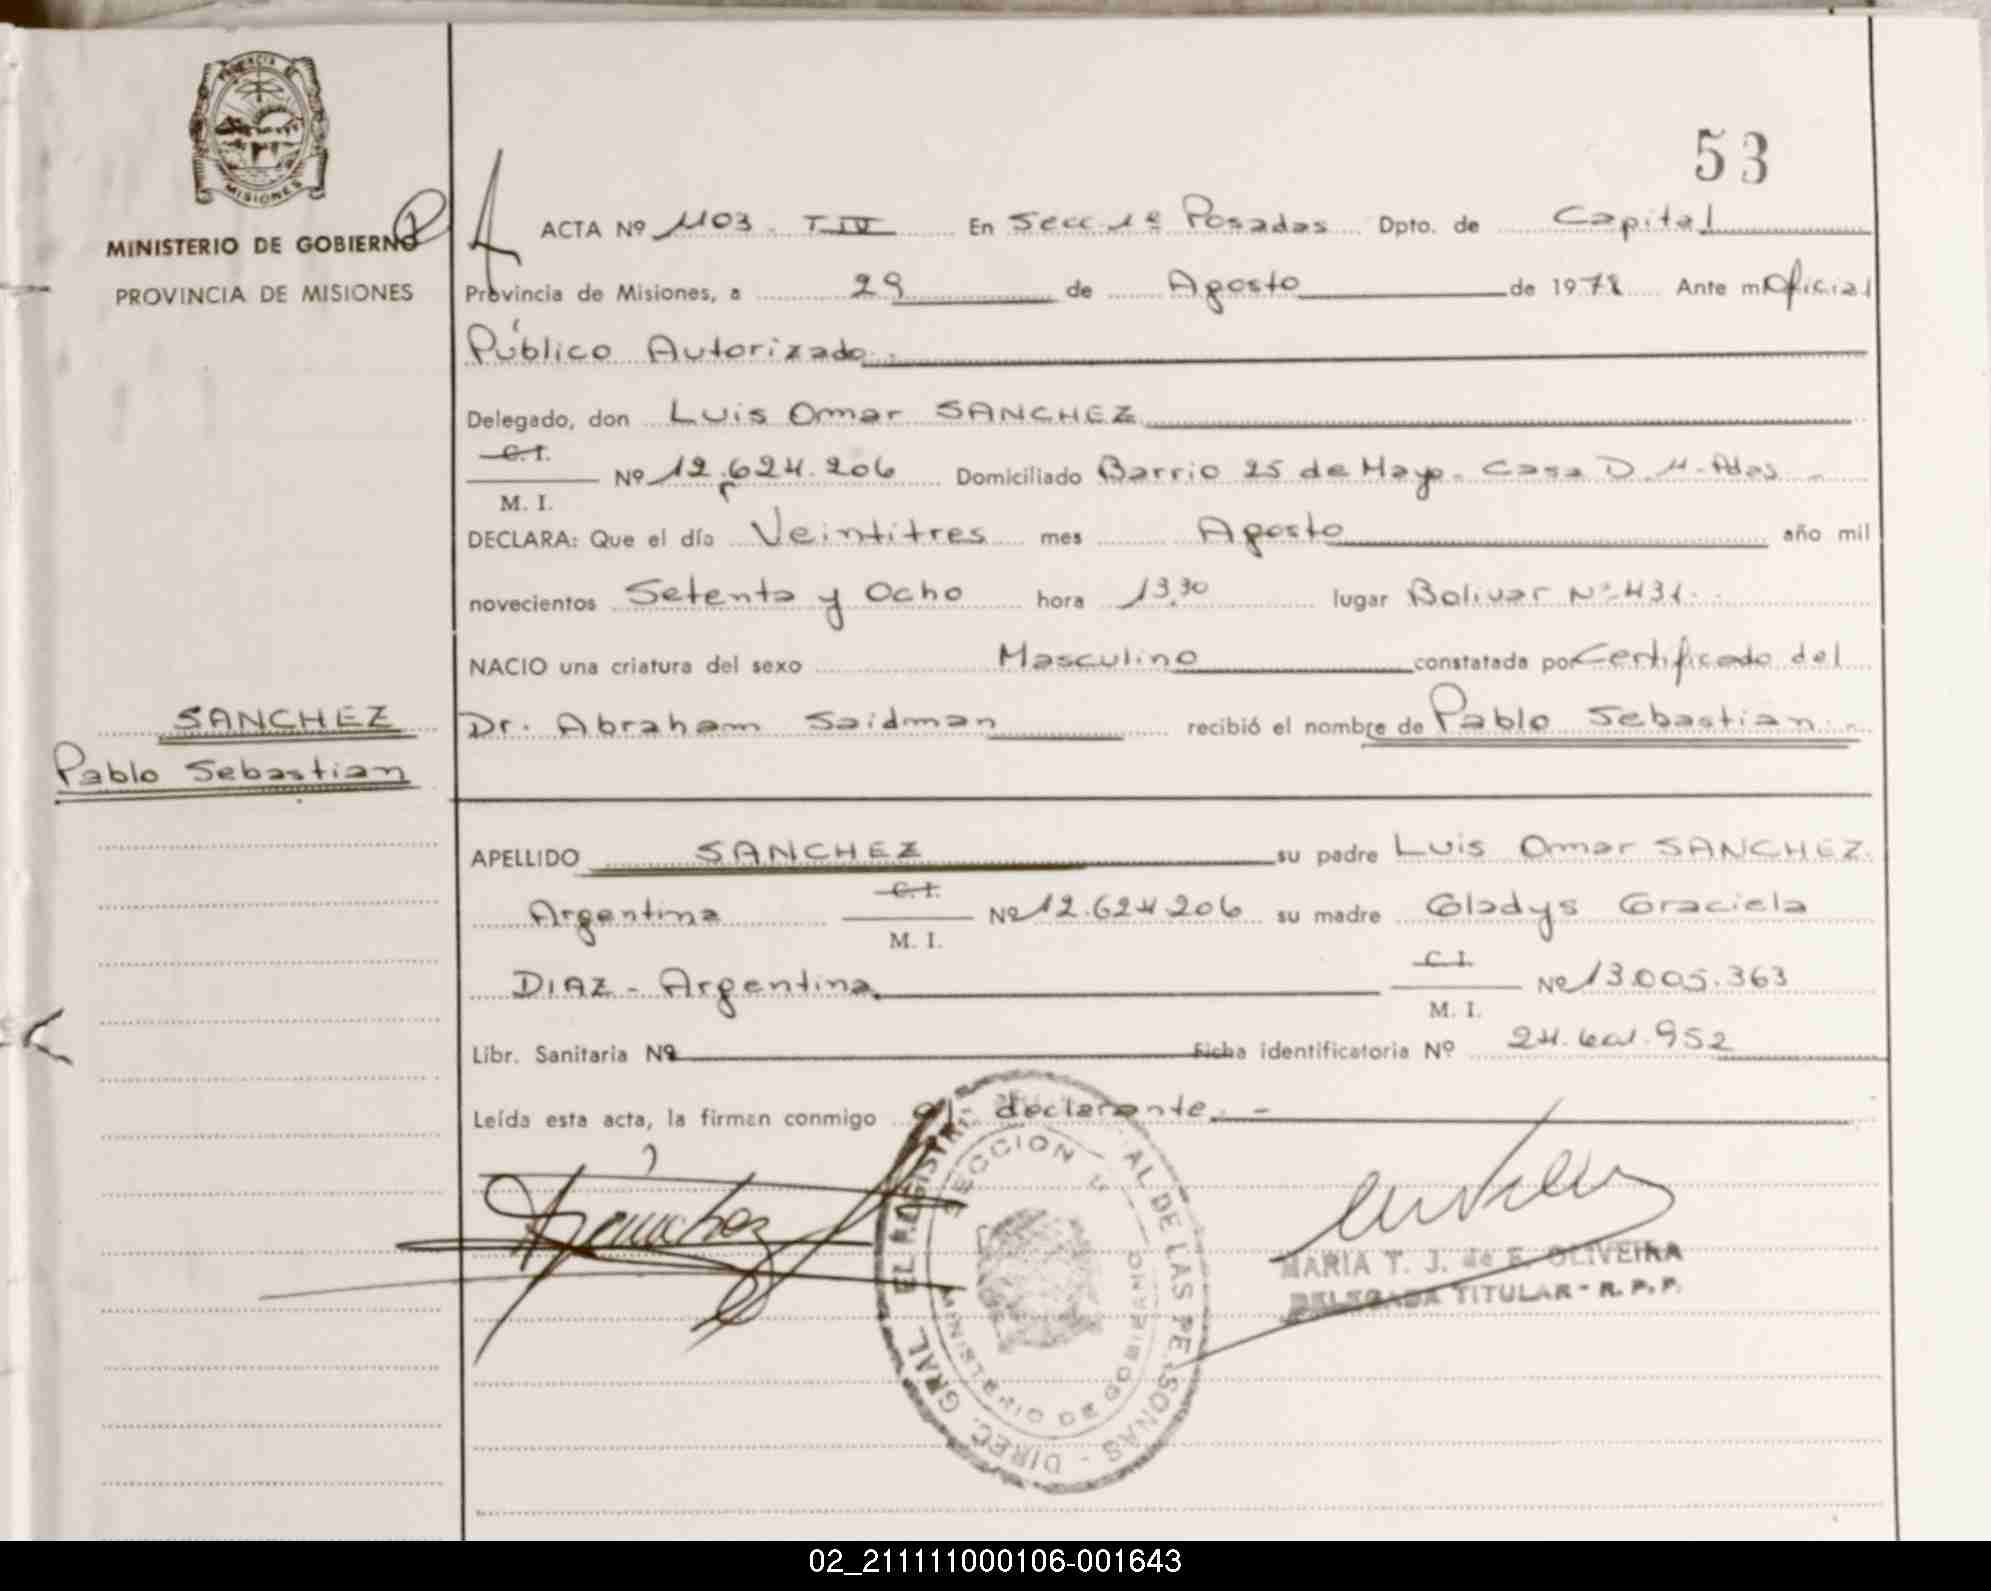 PROVINCIA DE
MISIONES
MINISTERIO DE GOBIERNO
PROVINCIA DE MISIONES
53
ACTA Nº 1103 - T IV En Secc 1º Posadas Dpto. de Capital
Provincia de Misiones, a 29 de Agosto de 1978 Ante mi Oficial
Público Autorizado.-
Delegado, don Luis Omar SANCHEZ
C.I.
M. I.
Nº 12.624.206 Domiciliado Barrio 25 de Mayo - Casa D. 4 - Pdas -
DECLARA: Que el día Veintitres mes Agosto año mil
novecientos Setenta y Ocho hora 13.30 lugar Bolivar Nº 431.
NACIO una criatura del sexo Masculino constatada por Certificado del
SANCHEZ
Pablo Sebastian
Dr. Abraham Saidman recibió el nombre de Pablo Sebastian. -
APELLIDO SANCHEZ su padre Luis Omar SANCHEZ.
Argentina C.I. M. I. Nº 12.624.206 su madre Gladys Graciela
DIAZ - Argentina C.I. M. I. Nº 13.005.363
Libr. Sanitaria Nº Ficha identificatoria Nº 24.601.952
Leída esta acta, la firman conmigo el declarante. -
Sánchez
DIREC. GRAL DEL REGISTRO AL DE LAS PERSONAS
SECCION 1ª
MINISTERIO DE GOBIERNO
MARIA T. J. de E. OLIVEIRA
DELEGADA TITULAR - R. P. P.
02_211111000106-001643